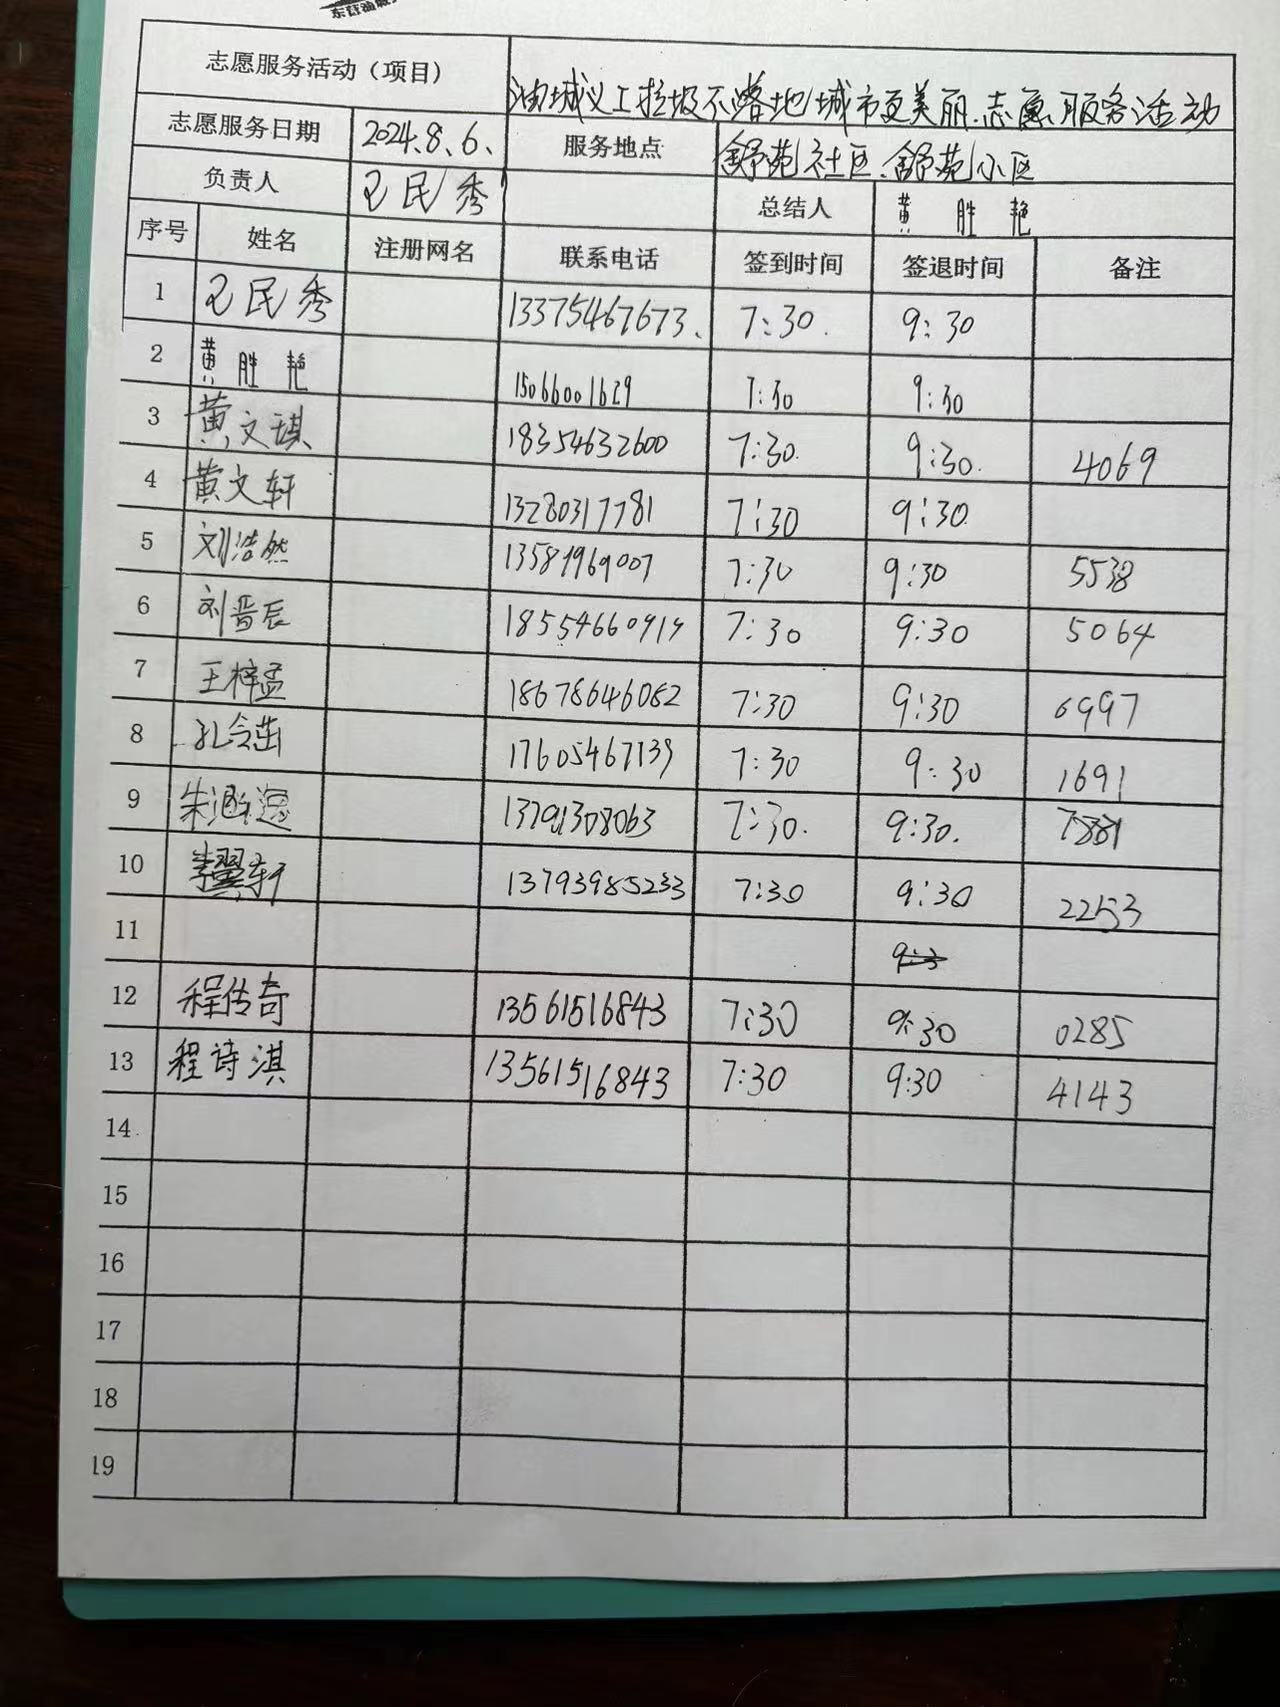 志愿服务活动（项目） 油城义工垃圾不落地城市更美丽.志愿服务活动
志愿服务日期 2024.8.6. 服务地点 舒苑社区.舒苑小区
负责人 王民秀 总结人 黄胜艳
序号 姓名 注册网名 联系电话 签到时间 签退时间 备注
1 王民秀 13375467673. 7:30. 9:30
2 黄胜艳 15066001629 7:30 9:30
3 黄文琪 18354632600 7:30. 9:30. 4069
4 黄文轩 13280317781 7:30 9:30.
5 刘浩然 13581969007 7:30 9:30 5538
6 刘晋辰 18554660919 7:30 9:30 5064
7 王梓孟 18678646082 7:30 9:30 6997
8 孔令茁 17605467139 7:30 9:30 1691
9 朱涵逸 13791308063 7:30. 9:30. 7881
10 李翼轩 13793985233 7:30 9:30 2253
11
12 程传奇 13561516843 7:30 9:30 0285
13 程诗淇 13561516843 7:30 9:30 4143
14
15
16
17
18
19